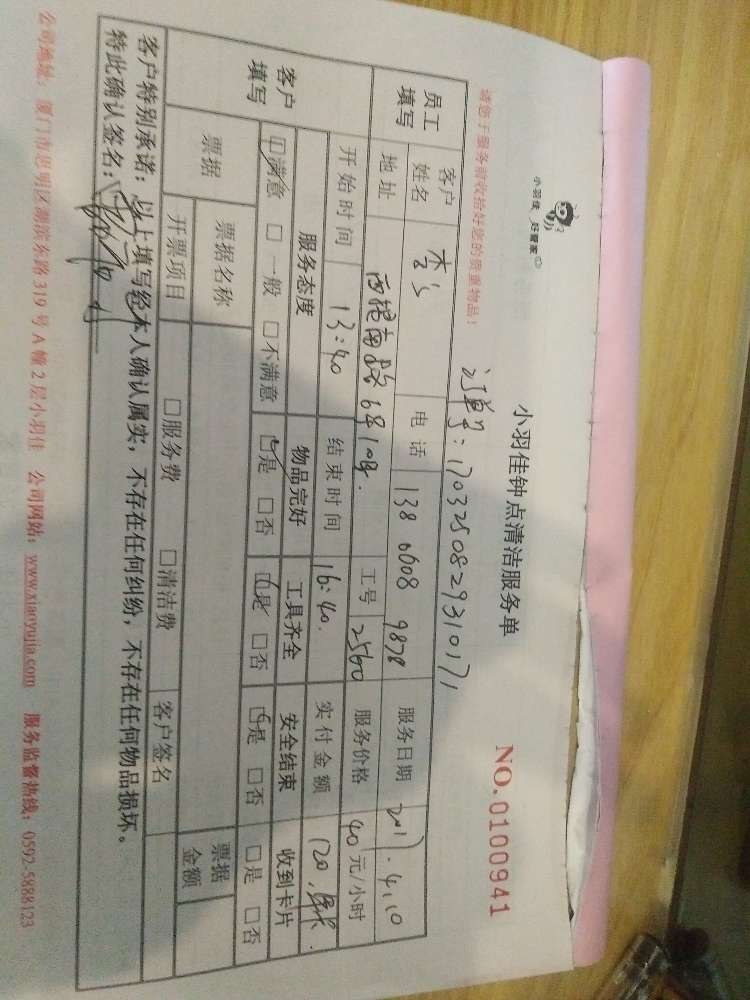 小羽佳 好管家
小羽佳钟点清洁服务单
NO.0100941
请您于服务前收拾好您的贵重物品！
订单号：1703250829310171
员工填写 客户姓名 李 电话 138 0608 9878 服务日期 2017.4.10
地址 西堤南路68 工号 2560 服务价格 40元/小时
开始时间 13:40 结束时间 16:40. 实付金额 120.
客户填写 服务态度 物品完好 工具齐全 安全结束 收到卡片
☑满意 □一般 □不满意 ☑是 □否 ☑是 □否 ☑是 □否 □是 □否
票据 票据名称 票据金额
开票项目 □服务费 □清洁费 客户签名
客户特别承诺：以上填写经本人确认属实，不存在任何纠纷，不存在任何物品损坏。
特此确认签名：
公司地址：厦门市思明区湖滨东路319号A幢2层小羽佳 公司网站：www.xiaoyujia.com 服务监督热线：0592-5888123